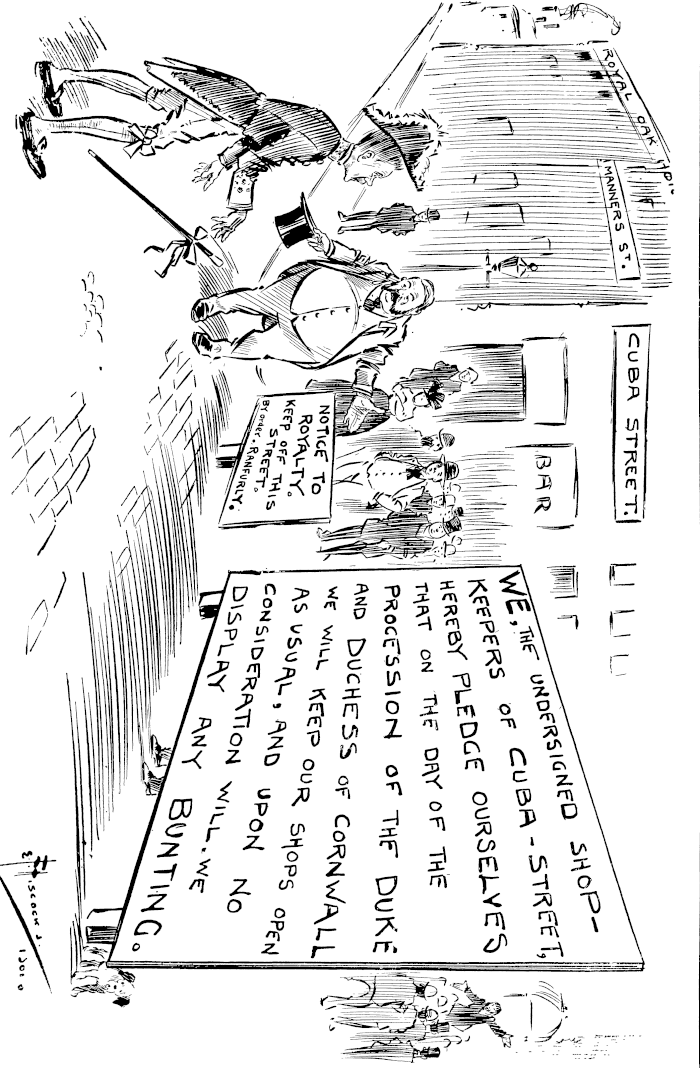 ROYAL OAK
MANNERS ST.
CUBA STREET.
BAR
NOTICE TO
ROYALTY.
KEEP OFF THIS
STREET.
By order, RANFURLY.
WE, THE UNDERSIGNED SHOP-
KEEPERS OF CUBA-STREET,
HEREBY PLEDGE OURSELVES
THAT ON THE DAY OF THE
PROCESSION OF THE DUKE
AND DUCHESS OF CORNWALL
WE WILL KEEP OUR SHOPS OPEN
AS USUAL, AND UPON NO
CONSIDERATION WILL. WE
DISPLAY ANY BUNTING.